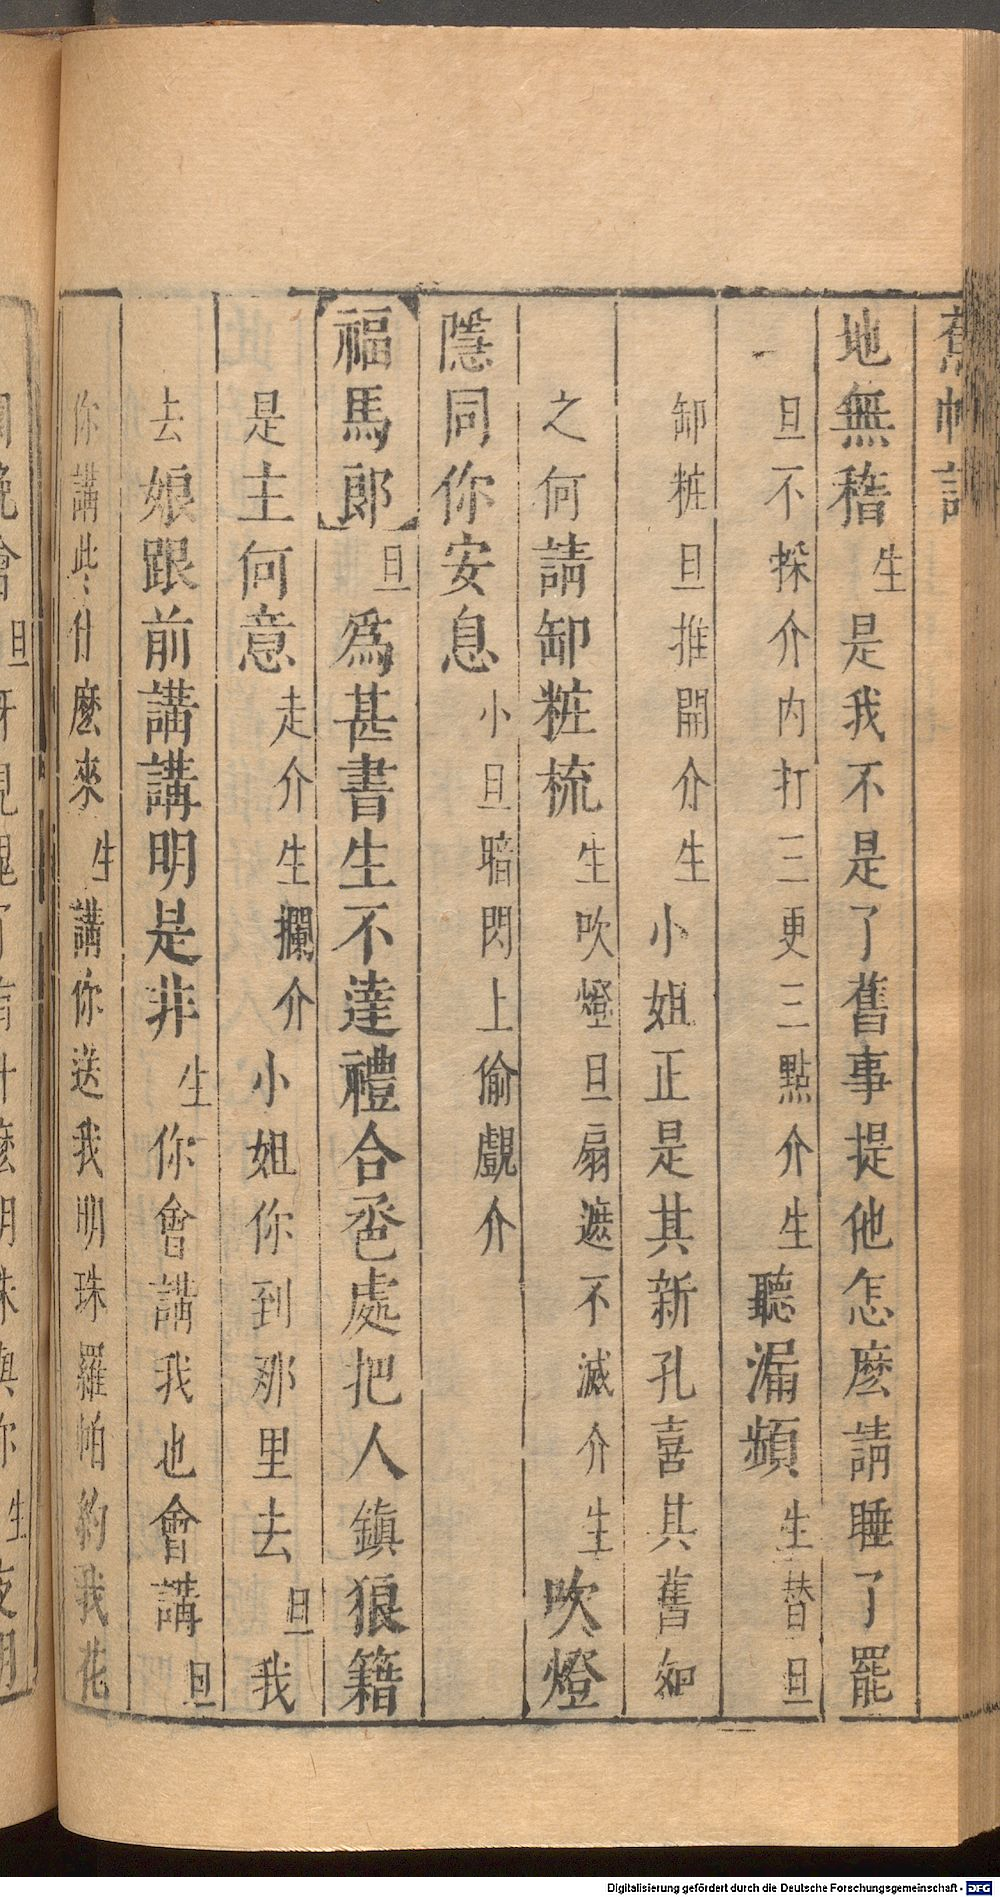 蕉帕記
地無稽生是我不是了舊事提他怎麽請睡了罷
旦不採介内打三更三點介生聽漏頻生替旦
卸粧旦推開介生小姐正是其新孔喜其舊如
之何請卸粧梳生吹燈旦扇遮不滅介生吹燈
隱同你安息小旦暗閃上偷覷介
福馬郎旦爲甚書生不達禮合巹處把人鎮狼籍
是主何意走介生攔介小姐你到那里去旦我
去娘跟前講講明是非生你會講我也會講旦
你講些什麽來生講你送我明珠羅帕約我花
Digitalisierung gefördert durch die Deutsche Forschungsgemeinschaft - DFG